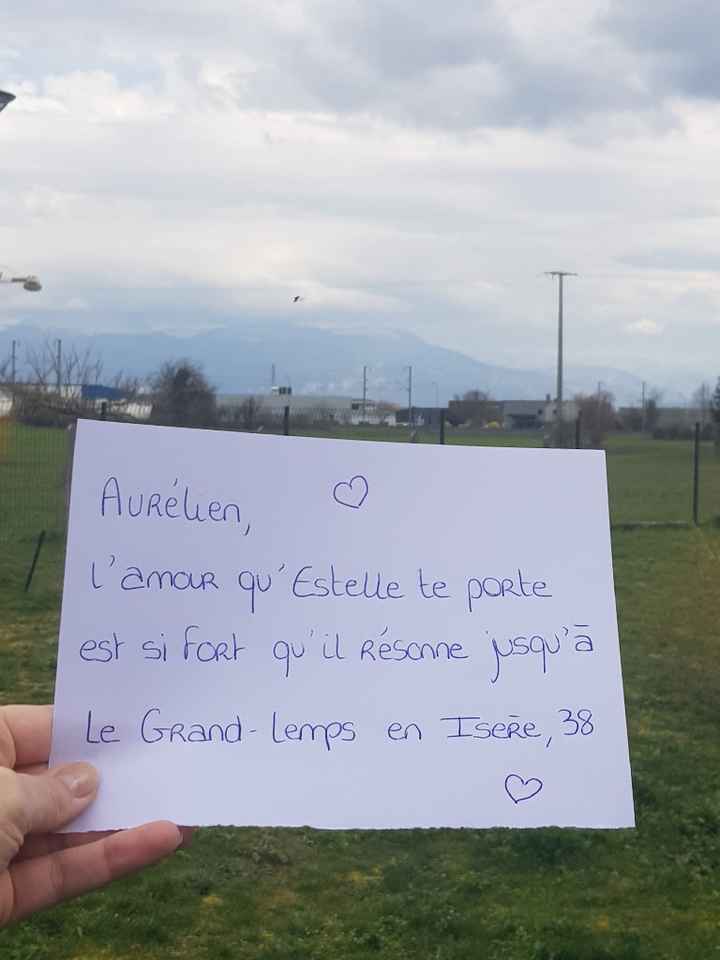 Aurélien,
l'amour qu'Estelle te porte
est si fort qu'il résonne jusqu'à
Le Grand-Lemps en Isère, 38